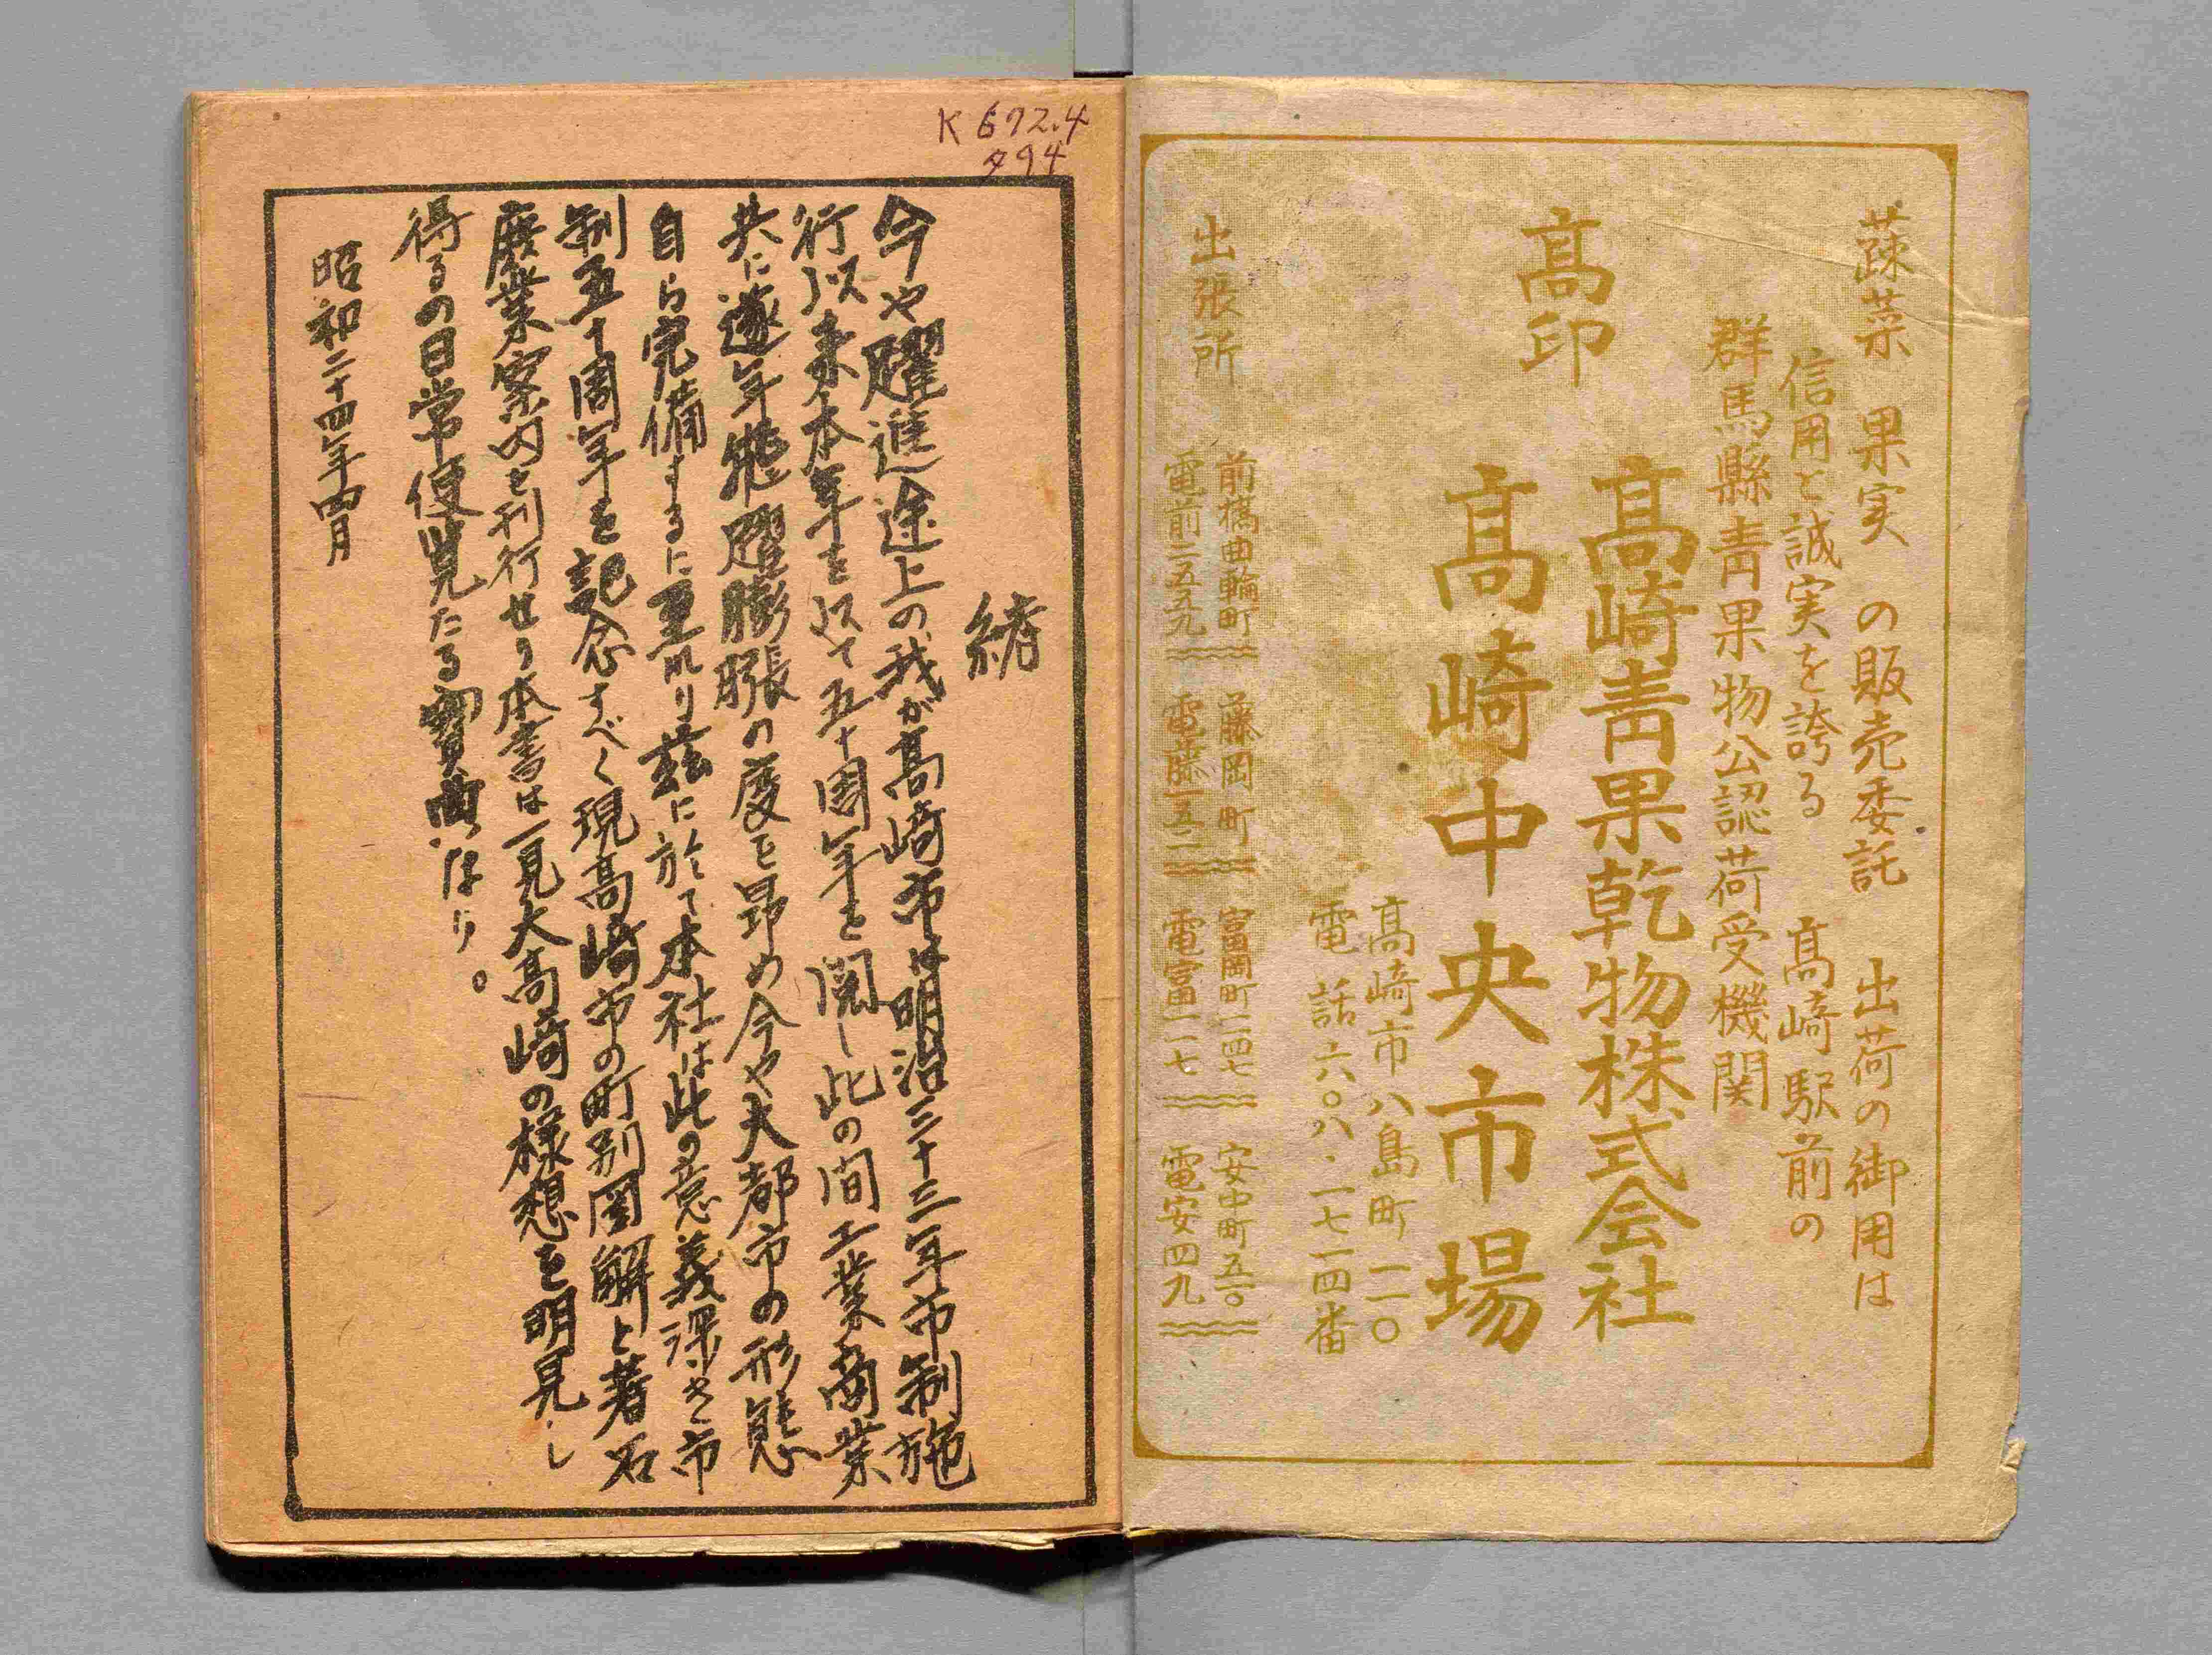 蔬菜 果実 の販売委託 出荷の御用は
信用と誠実を誇る 高崎駅前の
群馬縣青果物公認荷受機関
高崎青果乾物株式会社
高印 高崎中央市場
高崎市八島町一一〇
電話六〇八・一七一四番
出張所
前橋曲輪町 藤岡町 富岡町一四七 安中町五一〇
電前三五五九 電藤一五二 電富一一七 電安四九
K 672.4
タ94
緒
今や躍進途上の我が高崎市は明治三十三年市制施
行以来本年を以て五十周年を閲し此の間工業商業
共に逐年飛躍膨脹の度を昂め今や大都市の形態
自ら完備するに至れり茲に於て本社は此の意義深き市
制五十周年を記念すべく現高崎市の町別図解と著名
業案内を刊行せり本書は一見大高崎の様想を明見し
得るの日常便覧たる寳典なり。
昭和二十四年四月